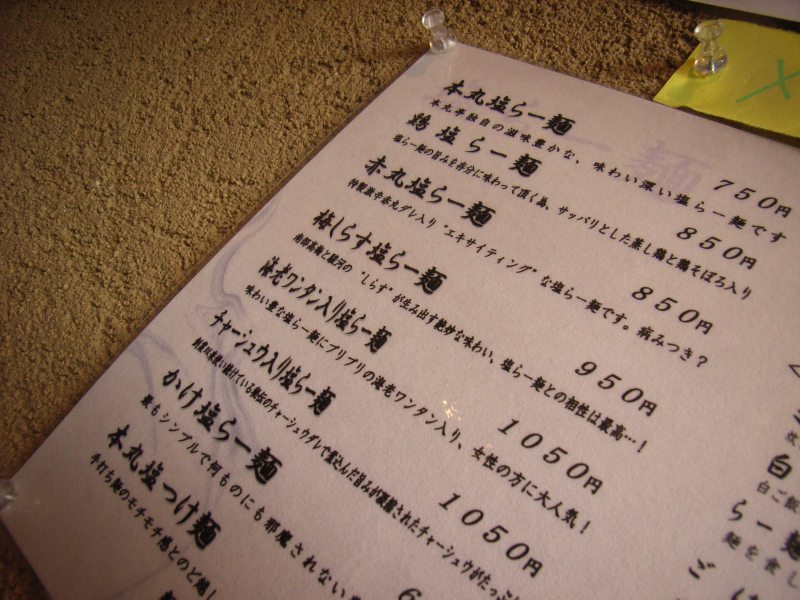 本丸塩らー麺 750円
本丸亭独自の滋味豊かな、味わい深い塩らー麺です
鶏塩らー麺 850円
塩らー麺の旨みを存分に味わって頂く為、サッパリとした蒸し鶏と鶏そぼろ入り
赤丸塩らー麺 850円
特製激辛赤丸ダレ入り“エキサイティング”な塩らー麺です。病みつき?
梅しらす塩らー麺 950円
南部高梅と駿河の“しらす”が生み出す絶妙な味わい、塩らー麺との相性は最高…!
海老ワンタン入り塩らー麺 1050円
味わい豊な塩らー麺にプリプリの海老ワンタン入り、女性の方に大人気!
チャーシュウ入り塩らー麺 1050円
チャーシュウダレで煮込んだ旨みが凝縮されたチャーシュウがたっぷ
かけ塩らー麺 6
最もシンプルで何ものにも邪魔されない
本丸塩つけ麺
手打ち麺のモチモチ感とのど越し
白
白ご飯
らー麺
麺を食し
ご